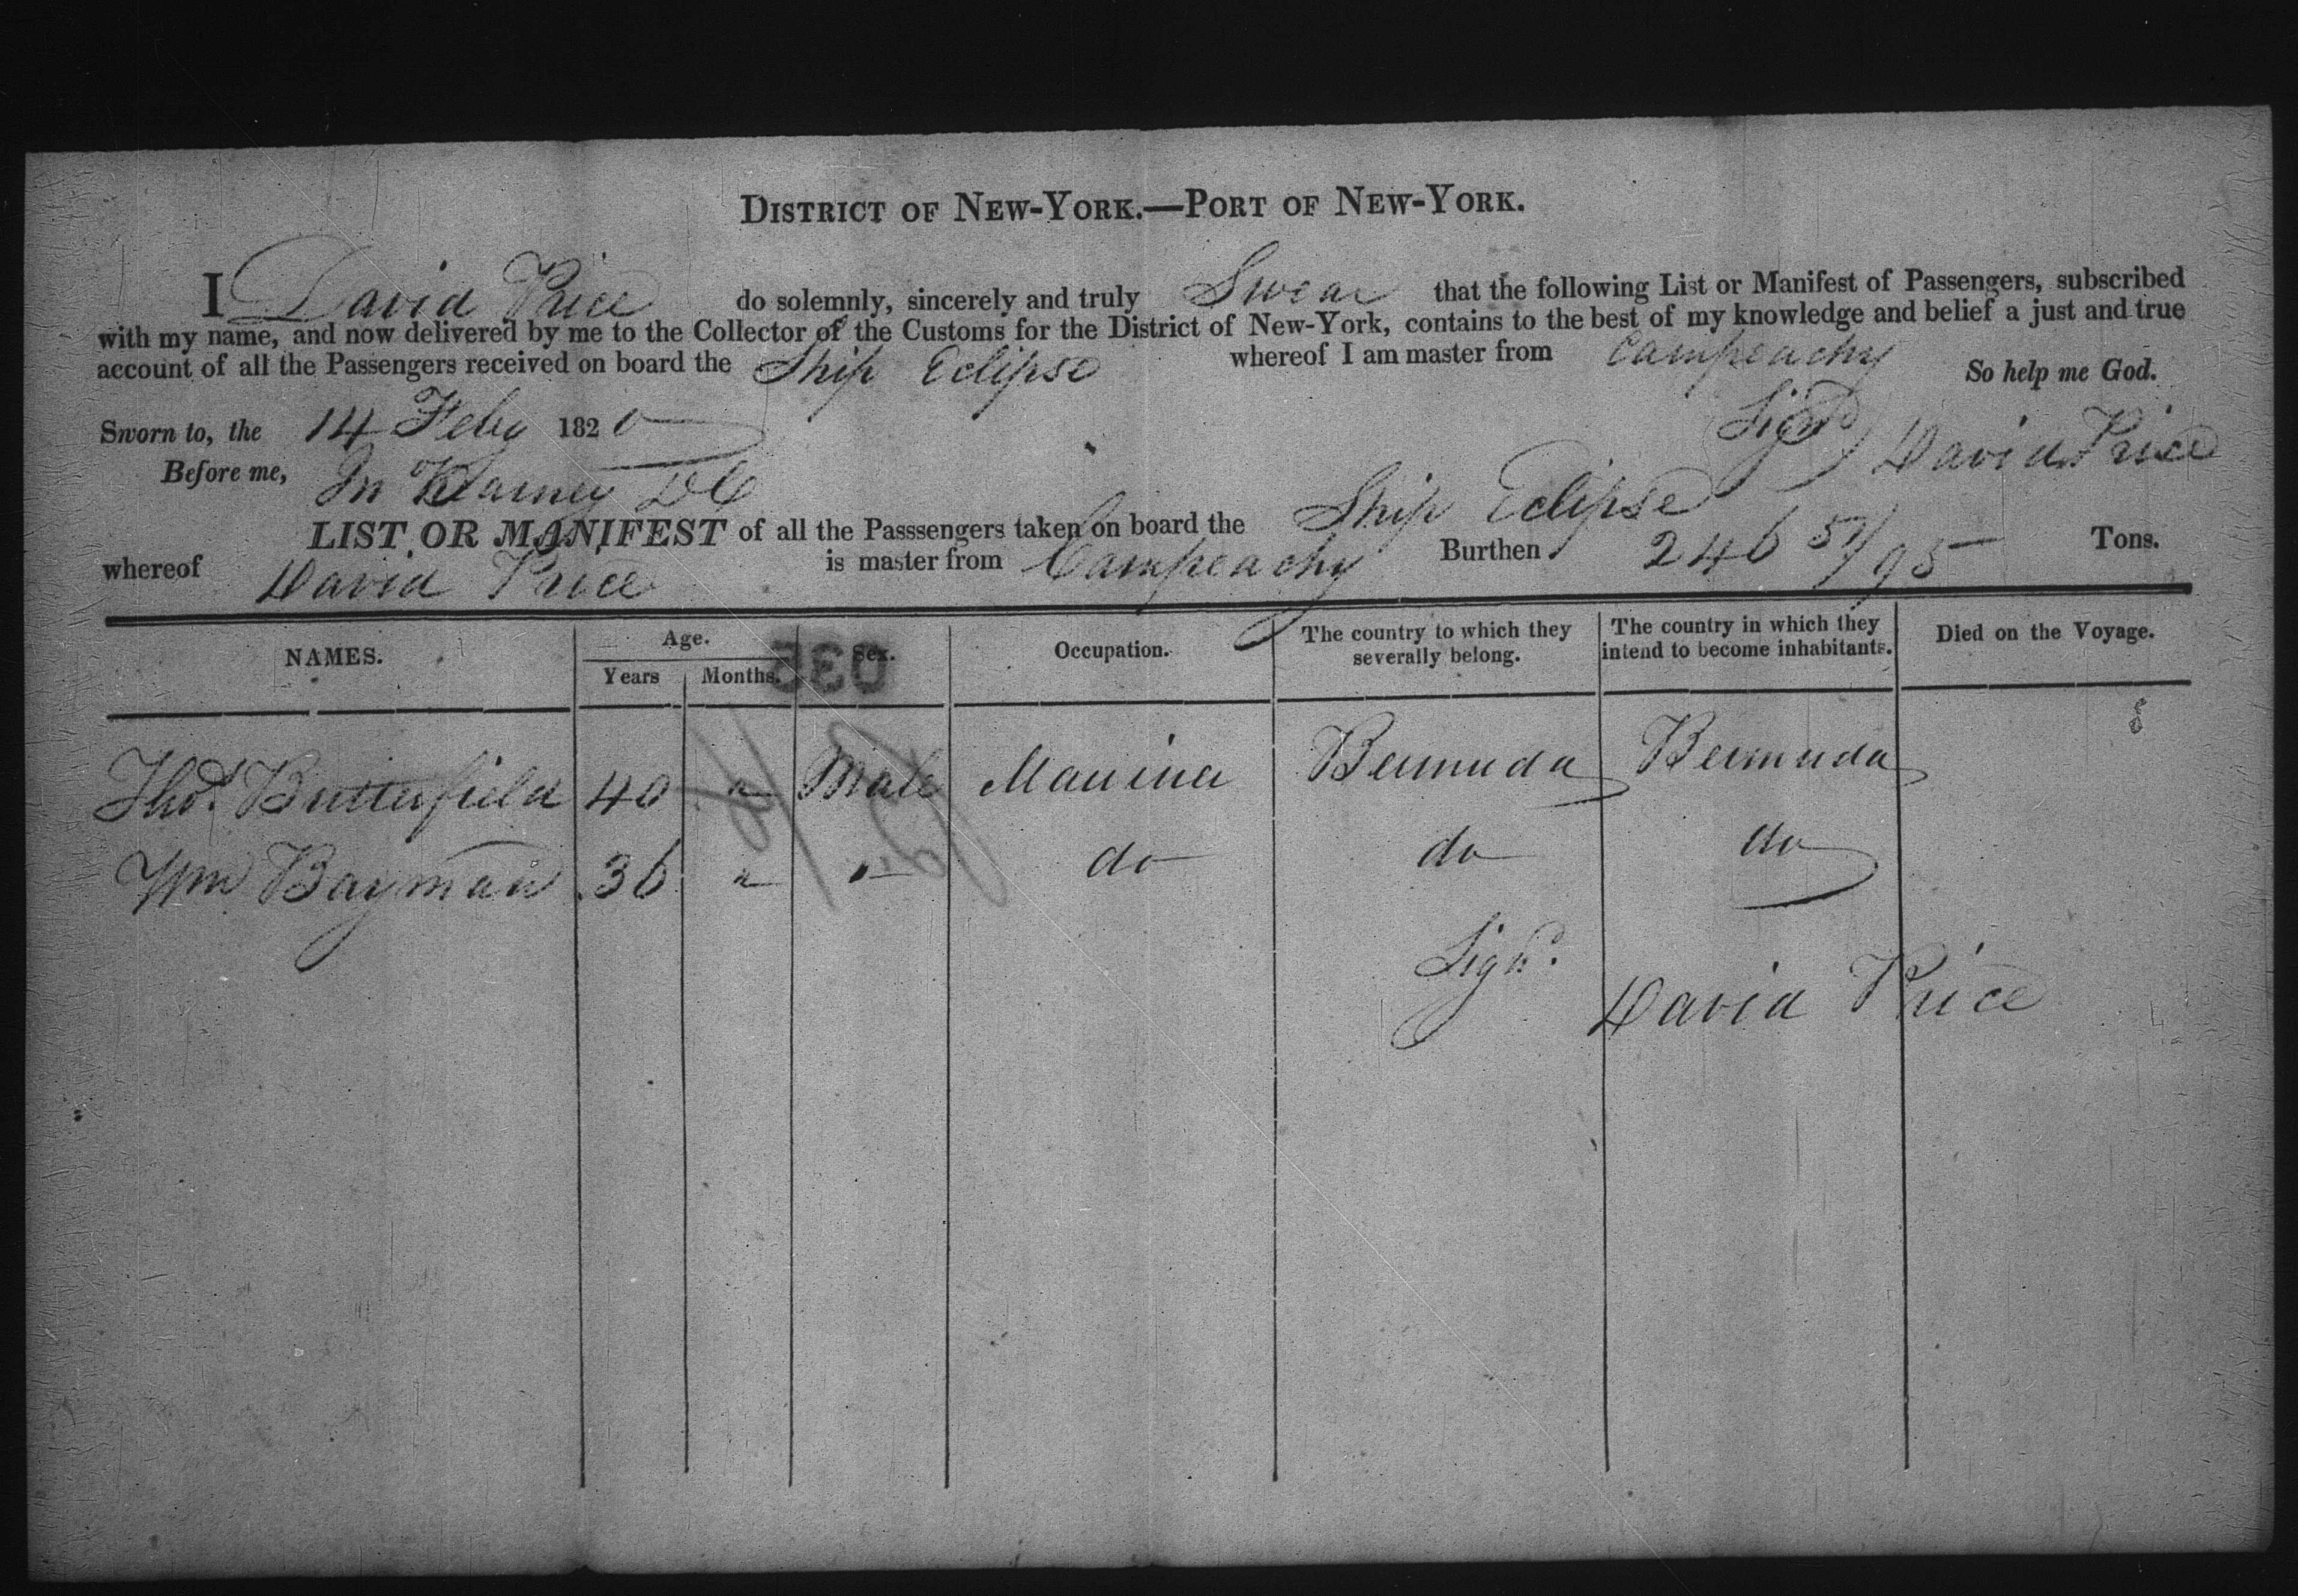 DISTRICT OF NEW-YORK.—PORT OF NEW-YORK.
I David Price do solemnly, sincerely and truly Swear that the following List or Manifest of Passengers, subscribed
with my name, and now delivered by me to the Collector of the Customs for the District of New-York, contains to the best of my knowledge and belief a just and true
account of all the Passengers received on board the Ship Eclipse whereof I am master from Campeachy So help me God.
Sworn to, the 14 Feby 1820 Signd David Price
Before me,
LIST OR MANIFEST of all the Passsengers taken on board the Ship Eclipse
whereof David Price is master from Campeachy Burthen 246 51/95 Tons.
NAMES. Age. Years Months. Sex. Occupation. The country to which they severally belong. The country in which they intend to become inhabitants. Died on the Voyage.
035
Thos. Butterfield 40 " Male Mariner Bermuda Bermuda
Wm Bayman 36 " " do do do
Signd.
David Price